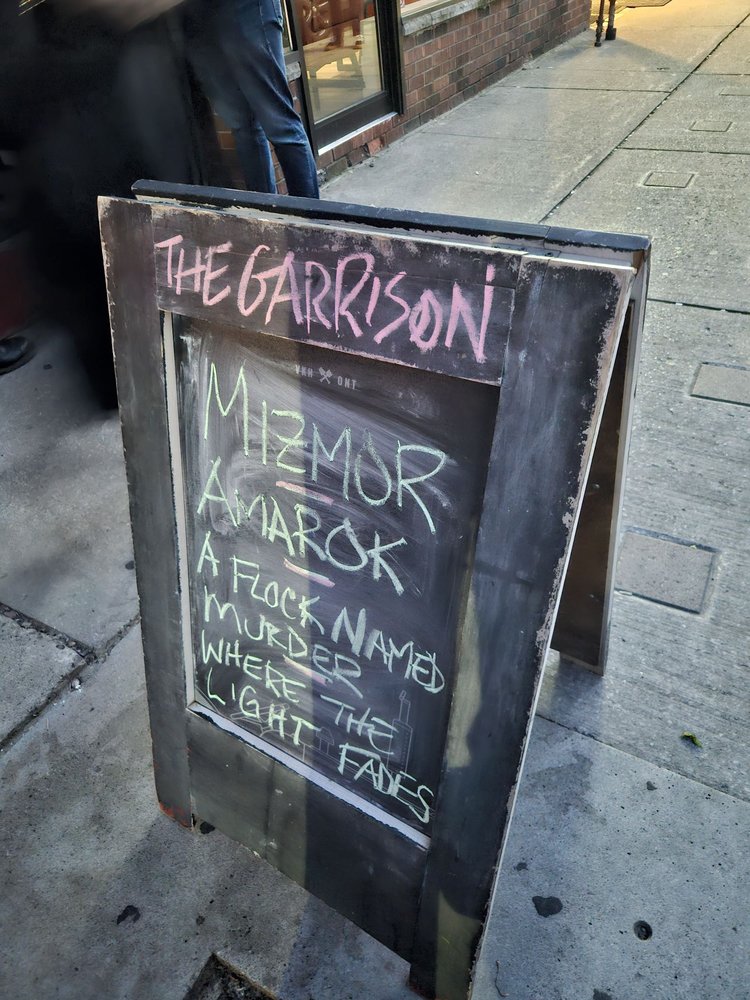 THE GARRISON
MIZMOR
AMAROK
A FLOCK NAMED
MURDER
WHERE THE
LIGHT FADES